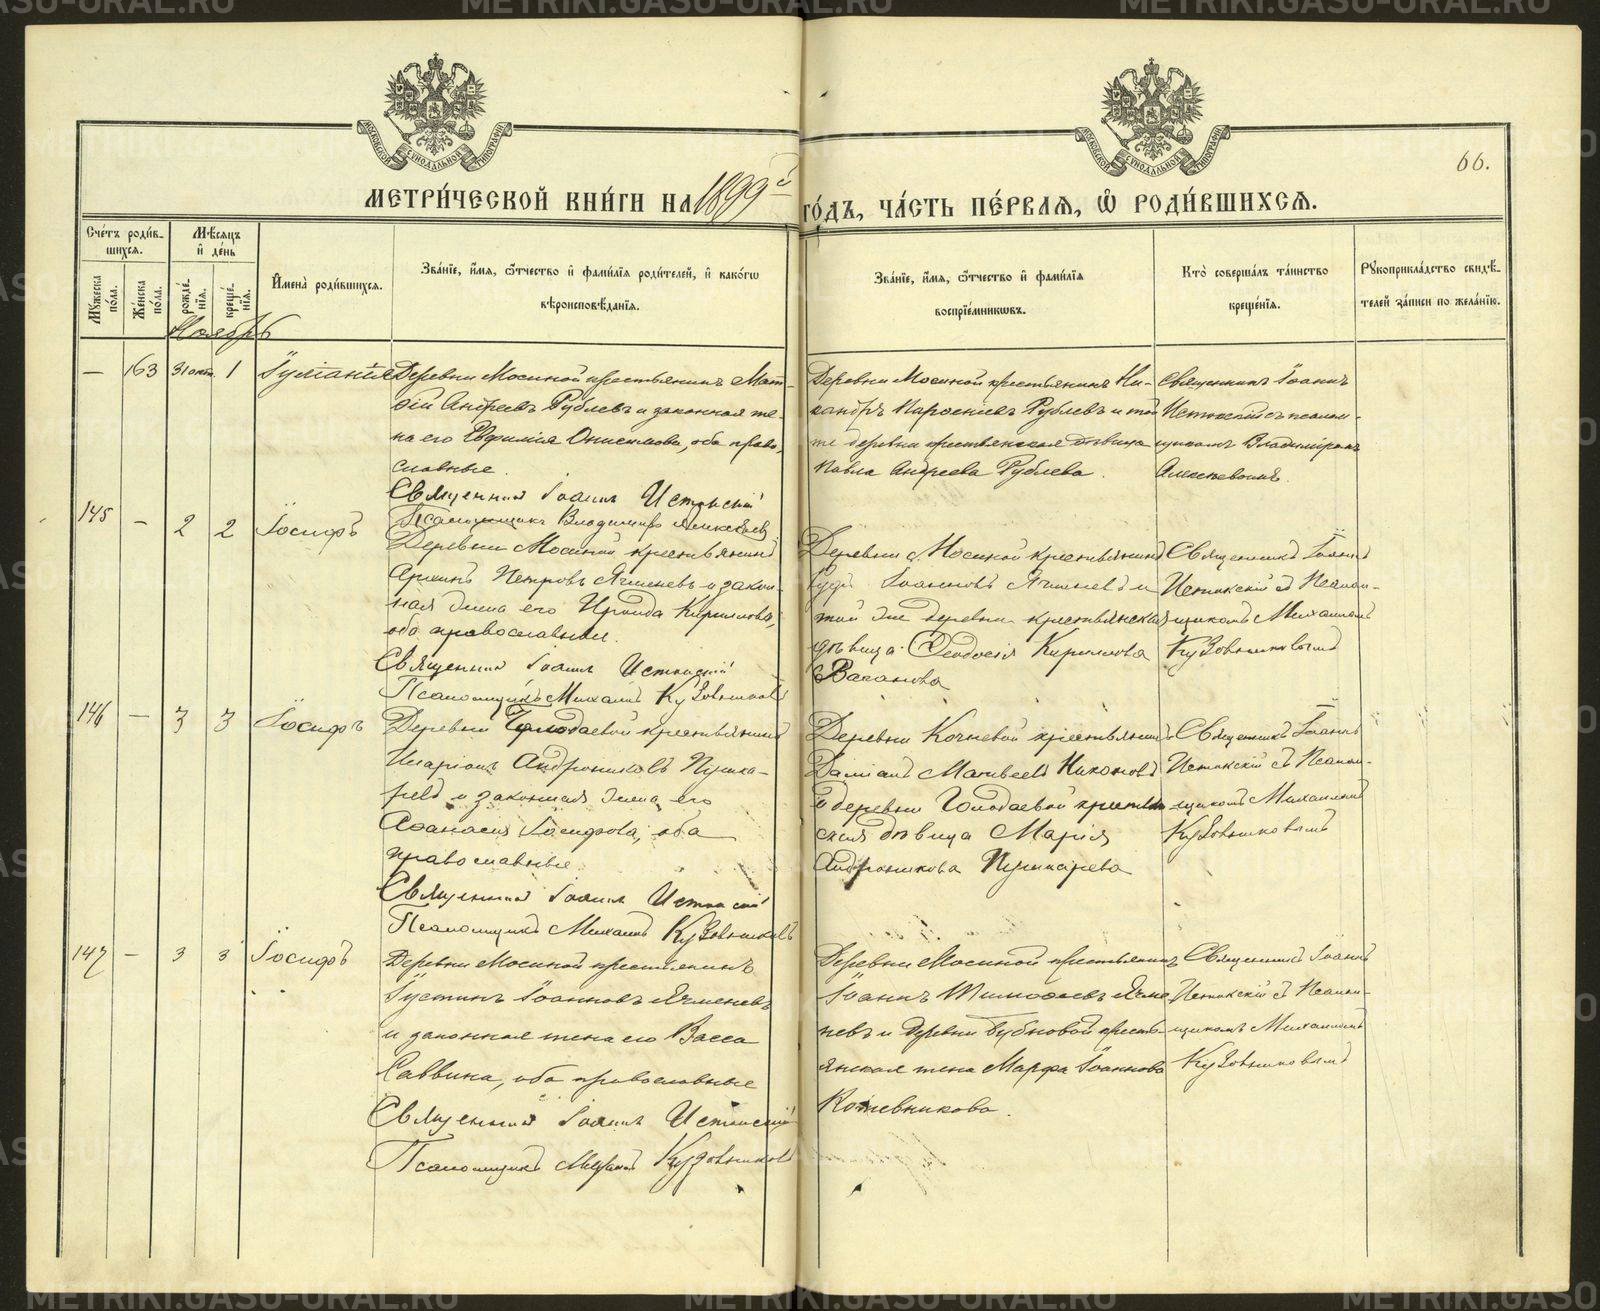 METRIKI.GASO-URAL.RU
МОСКОВСКОЙ СѴНОДАЛЬНОЙ ТИПОГРАФІИ
МОСКОВСКОЙ СѴНОДАЛЬНОЙ ТИПОГРАФІИ
66.
МЕТРИ́ЧЕСКОЙ КНИ́ГИ НА 1899й ГО́ДЪ, ЧА́СТЬ ПЕ́РВАЯ, Ѡ РОДИ́ВШИХСЯ.
Сче́тъ роди́в-
шихся.
Мꙋжеска по́ла.
Же́нска по́ла.
Мѣ́сяцъ
и҆ де́нь
рожде́-
нїя.
креще́-
нїя.
И҆мена̀ роди́вшихся.
Зва́нїе, и҆́мя, ѻ҆́тчество и҆ фами́лїя роди́телей, и҆ како́гѡ
вѣроисповѣ́данїя.
Зва́нїе, и҆́мя, ѻ҆́тчество и҆ фами́лїя
воспрїе́мникѡвъ.
Кто̀ соверша́лъ та́инство
креще́нїя.
Рꙋкоприкла́дство свидѣ́-
телей за́писи по жела́нїю.
Ноябрь
— 163 31 окт. 1 Іуліанія
Деревни Мосиной крестьянинъ Мат-
ѳій Андреевъ Рублевъ и законная же-
на его Евфимія Онисимова, оба право-
славные.
Священник Іоанн Истокский
Псаломщикъ Владимиръ Алексѣевъ
Деревни Мосиной крестьянинъ Ни-
кандръ Парѳеніевъ Рублевъ и той
же деревни крестьянская дѣвица
Павла Андреева Рублева.
Священникъ Іоаннъ
Истокскій съ псалом-
щикомъ Владиміромъ
Алексѣевымъ.
145 — 2 2 Іосифъ
Деревни Мосиной крестьянинъ
Петровъ Ячменевъ и закон-
ная жена его Ираида Кирилова,
оба православные.
Священник Іоанн Истокский
Псаломщикъ Михаилъ Кузовниковъ
Деревни Мосиной крестьянинъ
Іоанновъ Ячменевъ и
той же деревни крестьянская
дѣвица Ѳеодосія Кирилова
Ваганова
Священникъ Іоаннъ
Истокскій съ Псалом-
щикомъ Михаиломъ
Кузовниковымъ
146 — 3 3 Іосифъ
Деревни Голодаевой крестьянинъ
Иларіонъ Андрониковъ Пушка-
ревъ и законная жена его
Аѳанасія Іосифова, оба
православные.
Священник Іоанн Истокский
Псаломщикъ Михаилъ Кузовниковъ
Деревни Кочневой крестьянинъ
Даміанъ Матвеевъ Никоновъ
и деревни Голодаевой крестьян-
ская дѣвица Марія
Андроникова Пушкарева
Священникъ Іоаннъ
Истокскій съ Псалом-
щикомъ Михаиломъ
Кузовниковымъ
147 — 3 3 Іосифъ
Деревни Мосиной крестьянинъ
Іустинъ Іоанновъ Ячменевъ
и законная жена его Васса
Саввина, оба православные
Священник Іоанн Истокский
Псаломщикъ Михаилъ Кузовниковъ
Деревни Мосиной крестьянинъ
Іоаннъ Тимоѳеевъ Ячме-
невъ и деревни Бубновой кресть-
янская жена Марфа Іоаннова
Кожевникова.
Священникъ Іоаннъ
Истокскій съ Псалом-
щикомъ Михаиломъ
Кузовниковымъ